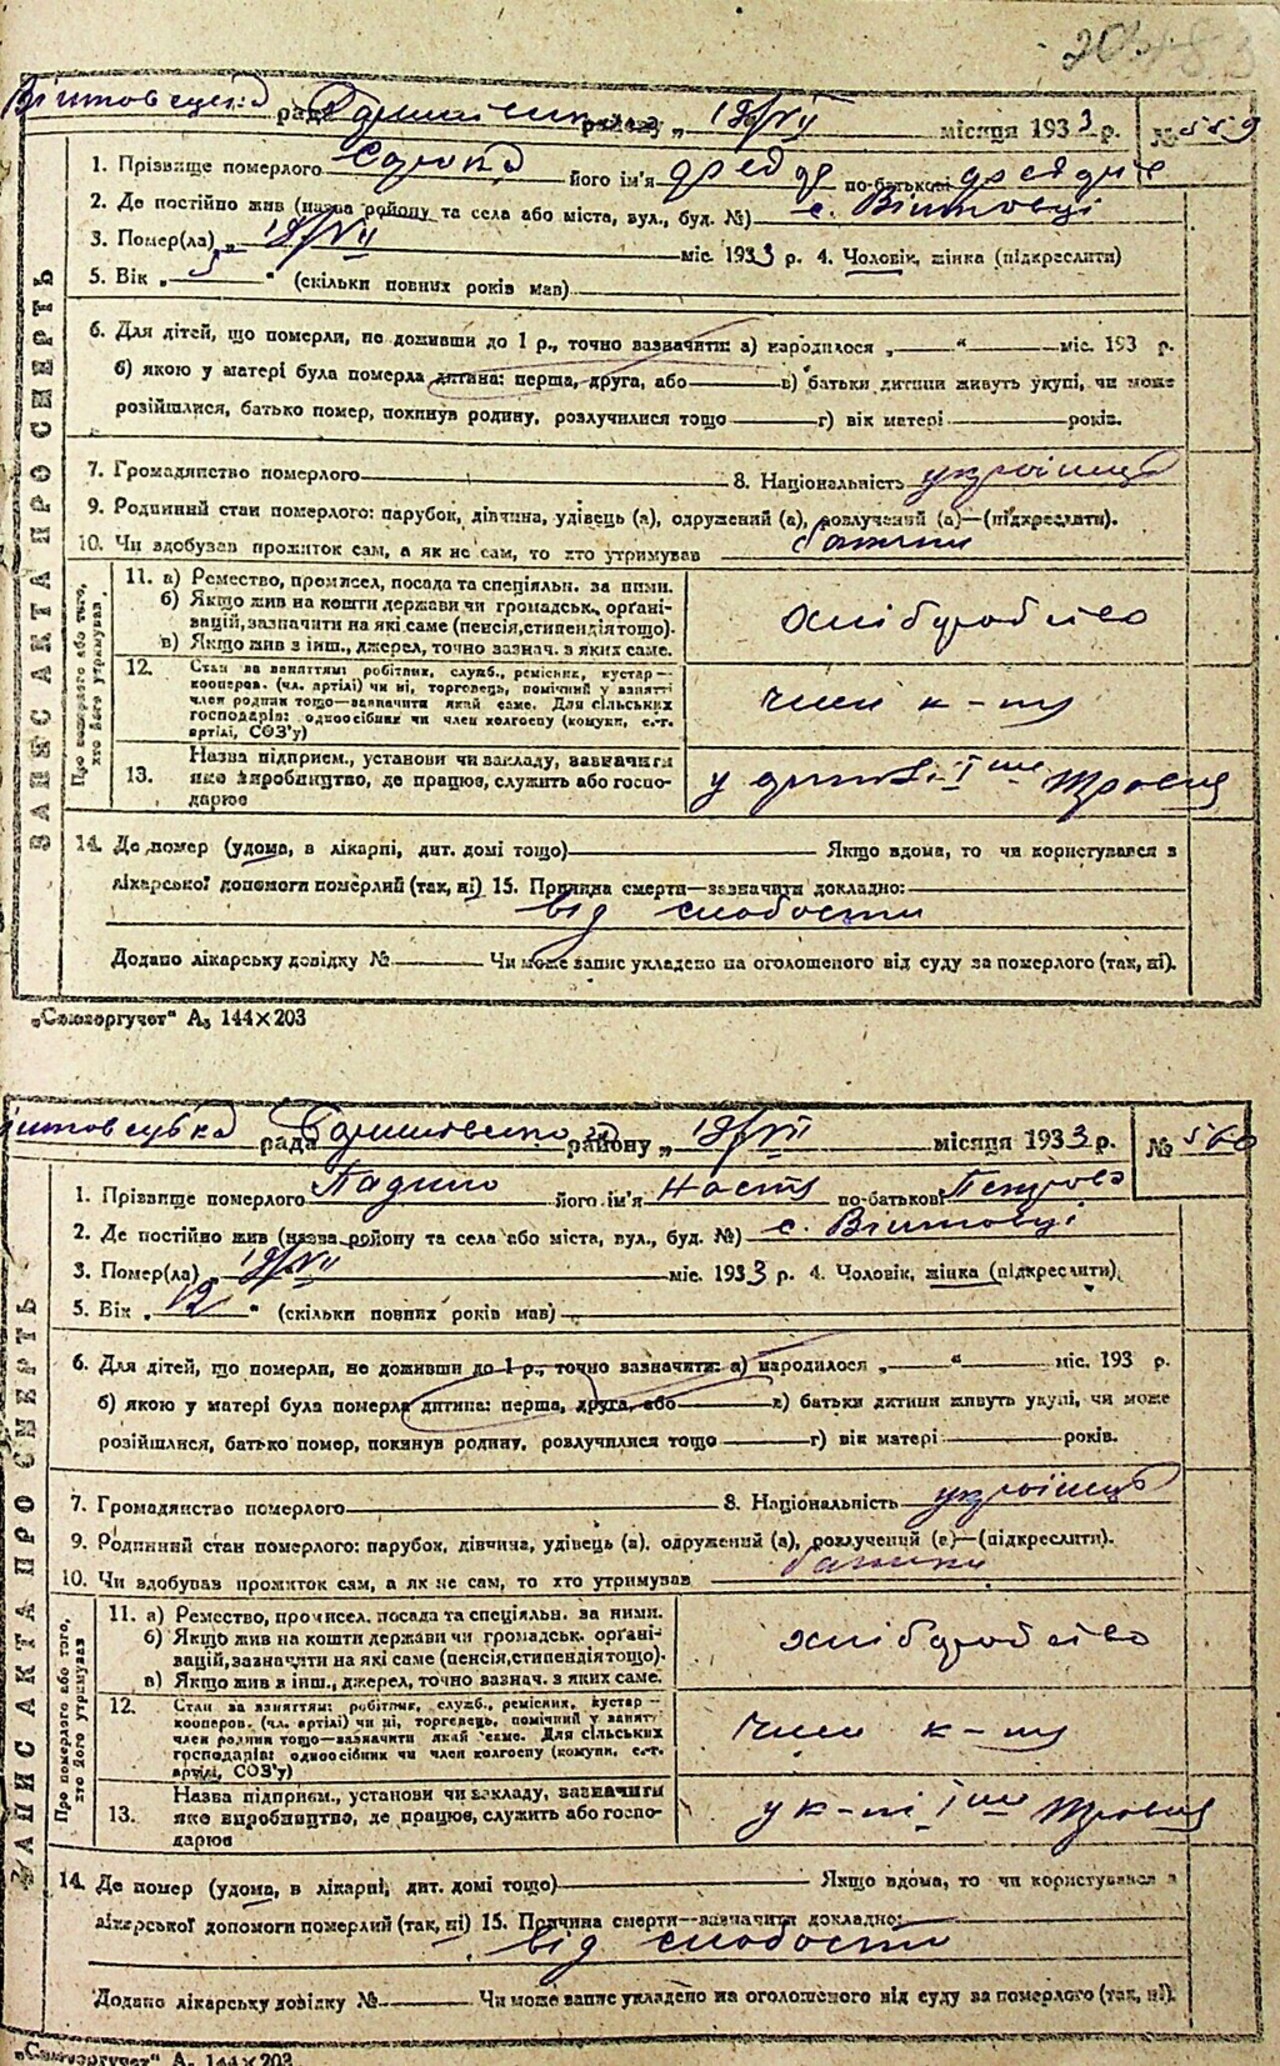 рада району „ 18/VII місяця 1933 р. № 559
1. Прізвище померлого Сорока його ім'я по-батькові
2. Де постійно жив (назва району та села або міста, вул., буд. №) с. Війтовці
3. Помер(ла) „ 18/VII міс. 1933 р. 4. Чоловік, жінка (підкреслити)
5. Вік „ 5 “ (скільки повних років мав)
ЗАПИС АКТА ПРО СМЕРТЬ
6. Для дітей, що померли, не доживши до 1 р., точно зазначити: а) народилося „ “ міс. 193 р.
б) якою у матері була померла дитина: перша, друга, або в) батьки дитини живуть укупі, чи може
розійшлися, батько помер, покинув родину, розлучилися тощо г) вік матері років.
7. Громадянство померлого 8. Національність українець
9. Родинний стан померлого: парубок, дівчина, удівець (а), одружений (а), розлучений (а)—(підкреслити).
10. Чи здобував прожиток сам, а як не сам, то хто утримував батьки
Про померлого або того, хто його утримував
11. а) Ремество, промисел, посада та спеціяльн. за ними.
б) Якщо жив на кошти держави чи громадськ. орґані-
зацій, зазначити на які саме (пенсія, стипендія тощо).
в) Якщо жив з інш., джерел, точно зазнач. з яких саме.
хліборобство
12. Стан за заняттям: робітник, служб., ремісник, кустар—
кооперов. (чл. артілі) чи ні, торговець, помічний у занятті
член родини тощо—зазначити який саме. Для сільських
господарів: одноосібник чи член колгоспу (комуни, с.-г.
артілі, СОЗ'у)
член к-пу
13. Назва підприєм., установи чи закладу, зазначити
яке виробництво, де працює, служить або госпо-
дарює
у 1ше Травня
14. Де помер (удома, в лікарні, дит. домі тощо) Якщо вдома, то чи користувався з
лікарської допомоги померлий (так, ні) 15. Причина смерти—зазначити докладно:
від слабости
Додано лікарську довідку № Чи може запис укладено на оголошеного від суду за померлого (так, ні).
„Союзоргучет“ А5 144×203
рада району „ 18/VII місяця 1933 р. № 560
1. Прізвище померлого його ім'я Настя по-батькові Петрова
2. Де постійно жив (назва району та села або міста, вул., буд. №) с. Війтовці
3. Помер(ла) „ 18/VII міс. 1933 р. 4. Чоловік, жінка (підкреслити)
5. Вік „ 12 “ (скільки повних років мав)
ЗАПИС АКТА ПРО СМЕРТЬ
6. Для дітей, що померли, не доживши до 1 р., точно зазначити: а) народилося „ “ міс. 193 р.
б) якою у матері була померла дитина: перша, друга, або в) батьки дитини живуть укупі, чи може
розійшлися, батько помер, покинув родину, розлучилися тощо г) вік матері років.
7. Громадянство померлого 8. Національність українець
9. Родинний стан померлого: парубок, дівчина, удівець (а), одружений (а), розлучений (а)—(підкреслити).
10. Чи здобував прожиток сам, а як не сам, то хто утримував батьки
Про померлого або того, хто його утримував
11. а) Ремество, промисел, посада та спеціяльн. за ними.
б) Якщо жив на кошти держави чи громадськ. орґані-
зацій, зазначити на які саме (пенсія, стипендія тощо).
в) Якщо жив з інш., джерел, точно зазнач. з яких саме.
хліборобство
12. Стан за заняттям: робітник, служб., ремісник, кустар—
кооперов. (чл. артілі) чи ні, торговець, помічний у занятті
член родини тощо—зазначити який саме. Для сільських
господарів: одноосібник чи член колгоспу (комуни, с.-г.
артілі, СОЗ'у)
член к-пу
13. Назва підприєм., установи чи закладу, зазначити
яке виробництво, де працює, служить або госпо-
дарює
у к-пі 1ше Травня
14. Де помер (удома, в лікарні, дит. домі тощо) Якщо вдома, то чи користувався з
лікарської допомоги померлий (так, ні) 15. Причина смерти—зазначити докладно:
від слабости
Додано лікарську довідку № Чи може запис укладено на оголошеного від суду за померлого (так, ні).
„Союзоргучет“ А5 144×203